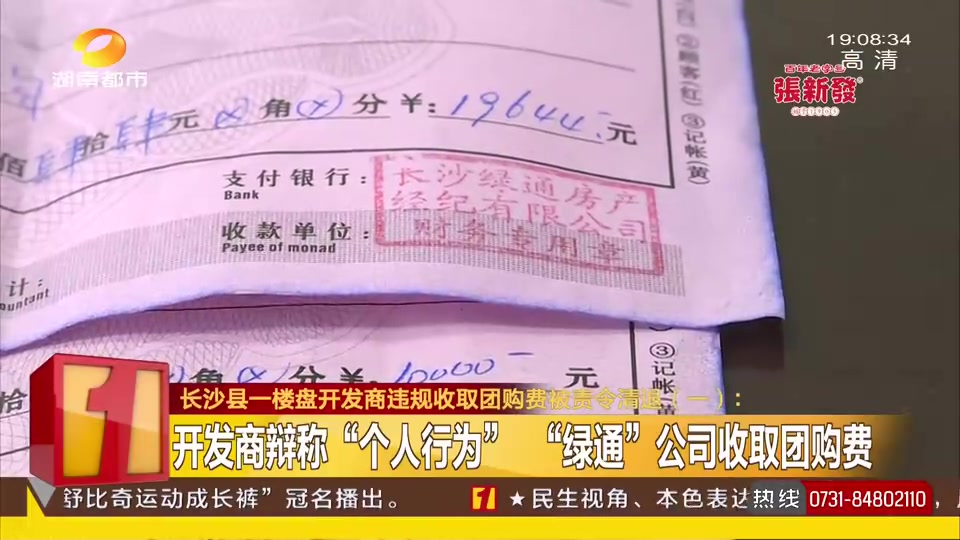 湖南都市
19:08:34
高清
百年老字号
張新發
②顾客(红) ③记帐(黄)
佰 肆 拾 肆 元 (×) 角 (×) 分 ¥: 19644 元
支付银行:
Bank
收款单位:
Payee of monad
长沙绿通房产
经纪有限公司
财务专用章
计:
ountant
拾
角 (×) 分 ¥: 10000 元
③记帐
长沙县一楼盘开发商违规收取团购费被责令清退(一):
开发商辩称“个人行为” “绿通”公司收取团购费
舒比奇运动成长裤”冠名播出。
★民生视角、本色表达
热线 0731-84802110